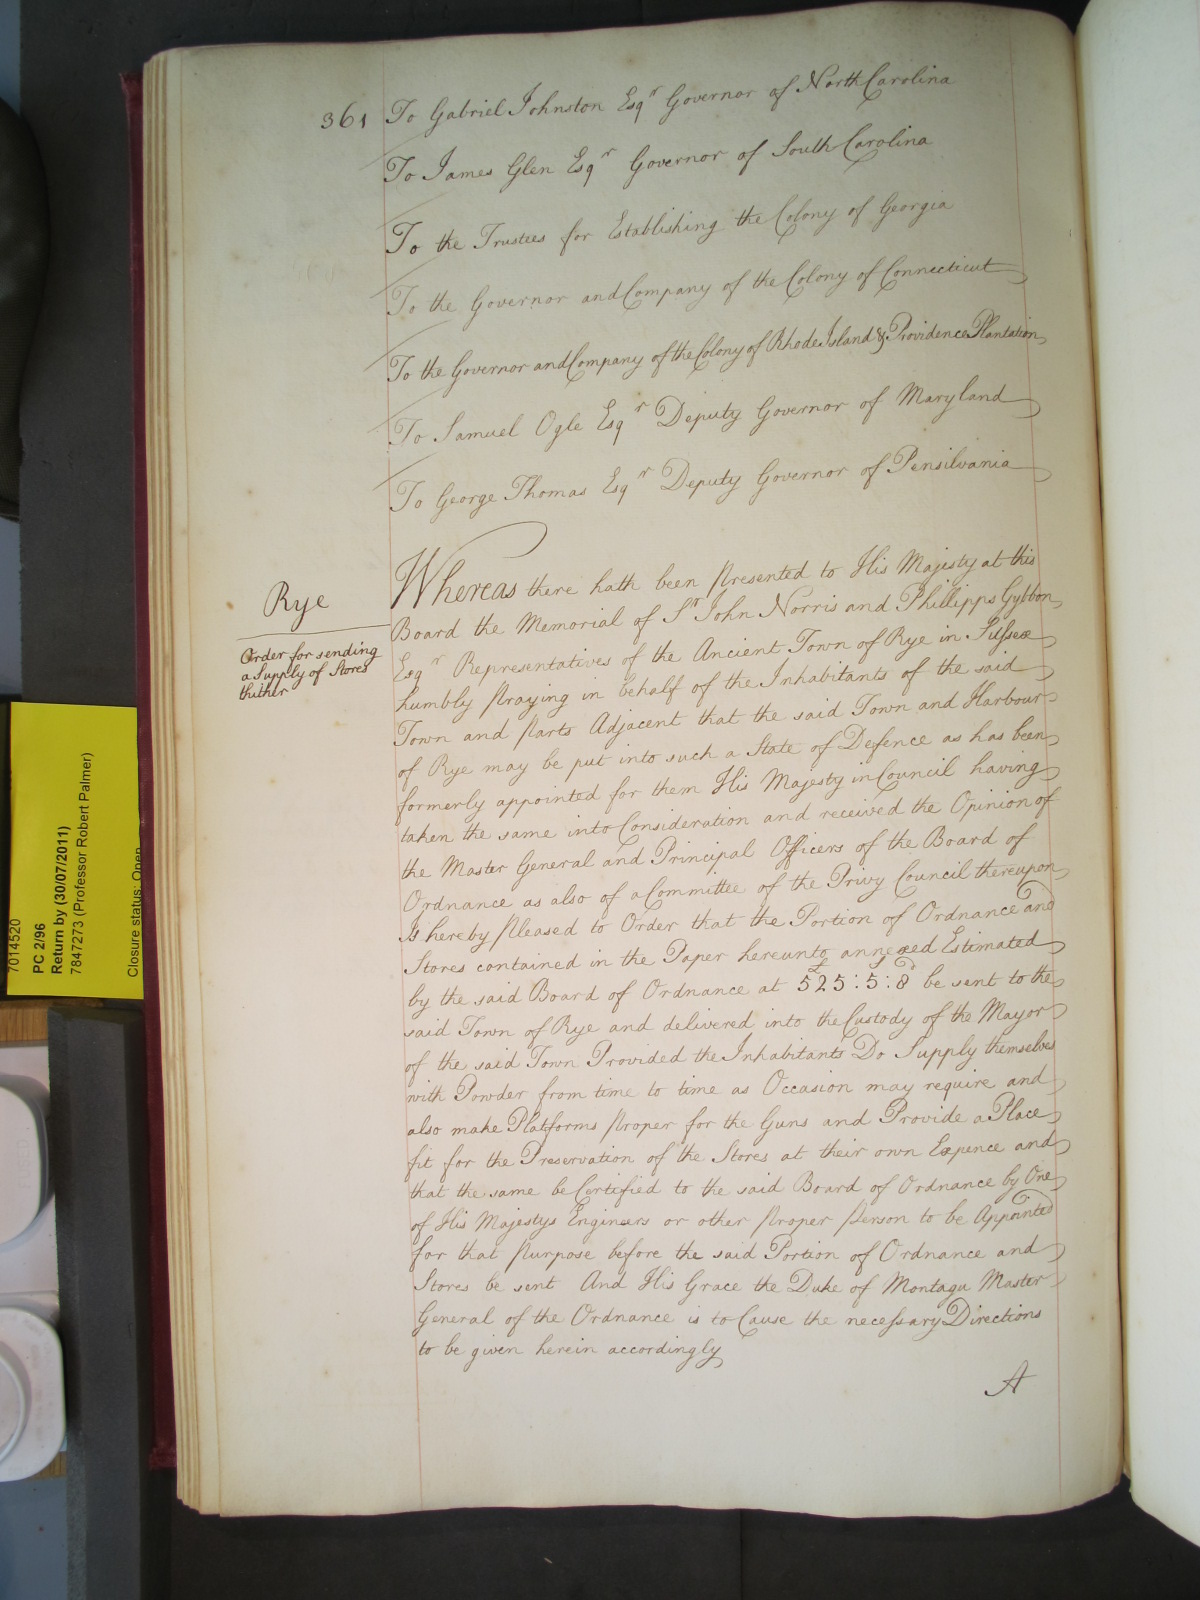 361 To Gabriel Johnston Esqr Governor of North Carolina
To James Glen Esqr Governor of South Carolina
To the Trustees for Establishing the Colony of Georgia
To the Governor and Company of the Colony of Connecticut
To the Governor and Company of the Colony of Rhode Island & Providence Plantation
To Samuel Ogle Esqr Deputy Governor of Maryland
To George Thomas Esqr Deputy Governor of Pensilvania
Rye
Order for sending
a Supply of Stores
thither
Whereas there hath been presented to His Majesty at this
Board the Memorial of Sr John Norris and Phillipps Gybbon
Esqr Representatives of the Ancient Town of Rye in Sussex
humbly praying in behalf of the Inhabitants of the said
Town and parts Adjacent that the said Town and Harbour
of Rye may be put into such a State of Defence as has been
formerly appointed for them His Majesty in Council having
taken the same into Consideration and received the Opinion of
the Master General and Principal Officers of the Board of
Ordnance as also of a Committee of the Privy Council thereupon
Is hereby pleased to Order that the Portion of Ordnance and
Stores contained in the Paper hereunto annexed Estimated
by the said Board of Ordnance at £525:5s:8d be sent to the
said Town of Rye and delivered into the Custody of the Mayor
of the said Town Provided the Inhabitants Do Supply themselves
with Powder from time to time as Occasion may require and
also make Platforms proper for the Guns and Provide a Place
fit for the Preservation of the Stores at their own Expence and
that the same be Certified to the said Board of Ordnance by One
of His Majestys Engineers or other proper person to be Appointed
for that purpose before the said Portion of Ordnance and
Stores be sent And His Grace the Duke of Montagu Master
General of the Ordnance is to Cause the necessary Directions
to be given herein accordingly
A
7014520
PC 2/96
Return by (30/07/2011)
7847273 (Professor Robert Palmer)
Closure status: Open